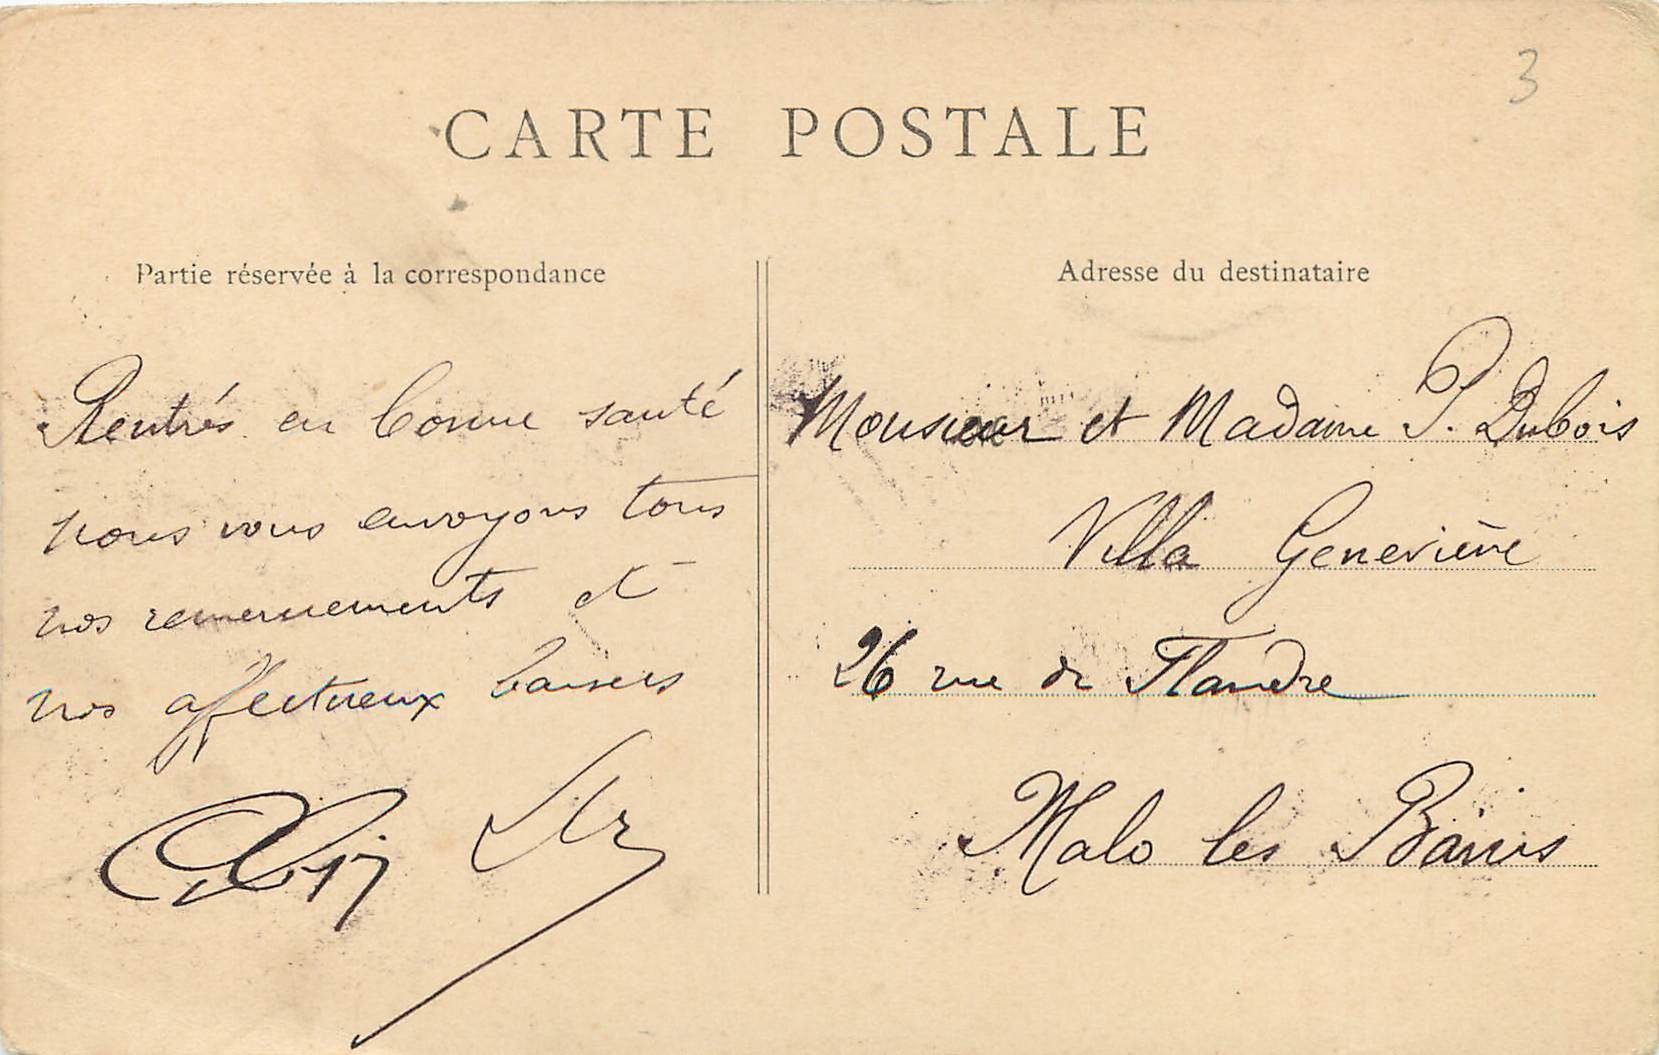 3
CARTE POSTALE
Partie réservée à la correspondance
Rentrés en bonne santé
nous vous envoyons tous
nos remerciements et
nos affectueux baisers
Adresse du destinataire
Monsieur et Madame P. Dubois
Villa Geneviève
26 rue de Flandre
Malo les Bains